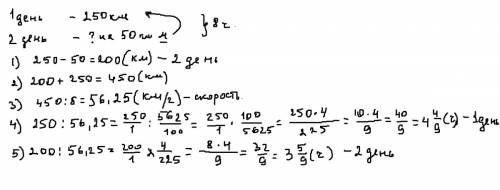 1 день - 250 км
2 день - ? на 50 км м } 8 ч.
1) 250 - 50 = 200 (км) - 2 день
2) 200 + 250 = 450 (км)
3) 450 : 8 = 56,25 (км/ч) - скорость
4) 250 : 56,25 = 250/1 : 5625/100 = 250/1 · 100/5625 = 250·4/225 = 10·4/9 = 40/9 = 4 4/9 (ч) - 1 день
5) 200 : 56,25 = 200/1 × 4/225 = 8·4/9 = 32/9 = 3 5/9 (ч) - 2 день